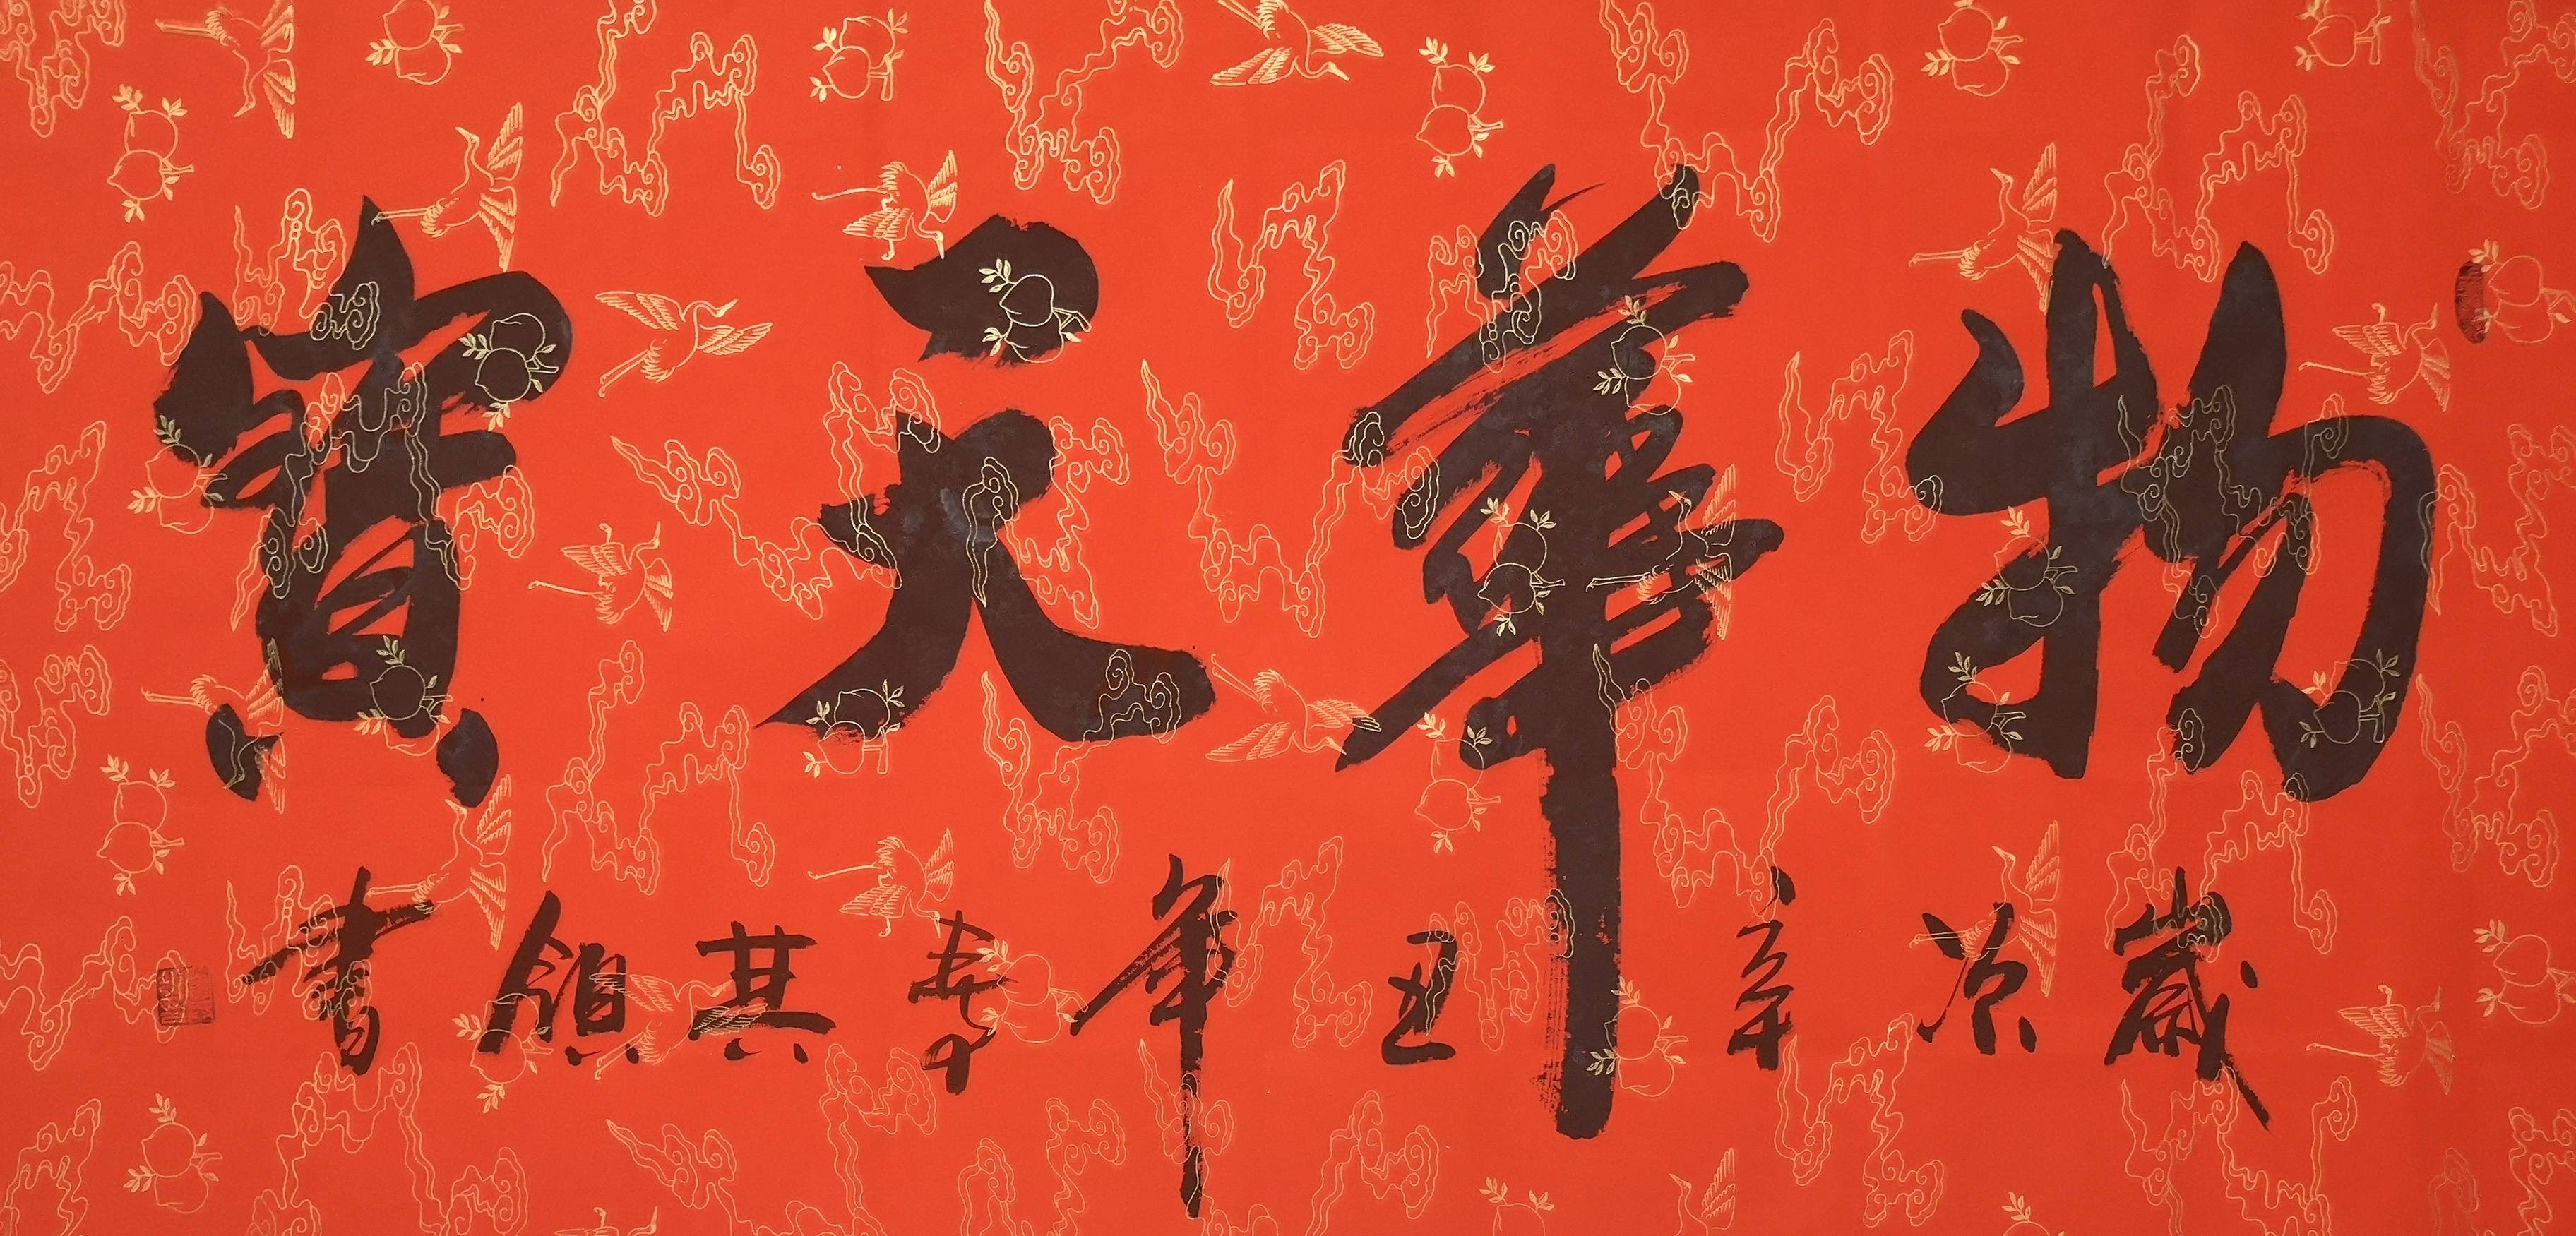 物華天寶
歲次辛丑年春其領書